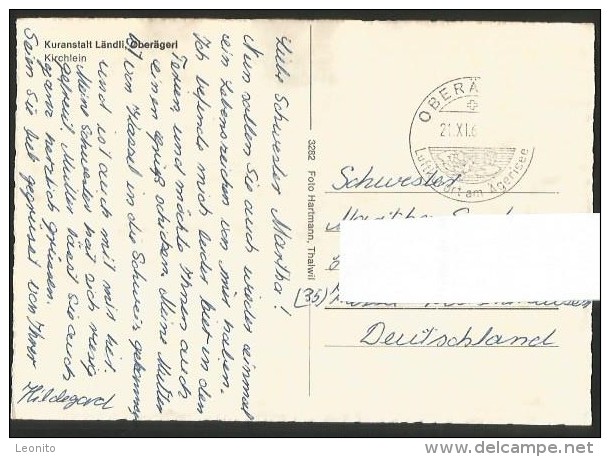 Kuranstalt Ländli, Oberägeri
Kirchlein
Liebe Schwester Martha!
Nun sollen Sie auch wieder einmal
ein Lebenszeichen von mir haben.
Ich befinde mich leider hier in den
Ferien und möchte Ihnen auch
einen Gruß schicken. Meine Mutter
ist von Kassel in die Schweiz gekommen
und ist auch mit mir hier.
Meine Schwester hat sich riesig
gefreut. Mutter lässt Sie auch
ganz herzlich grüssen.
Seien Sie lieb gegrüsst von Ihrer
Hildegard
3282 Foto Hartmann, Thalwil
OBERÄ
21.XI.6
am Ägerisee
Schwester
(35)
Deutschland
Leonito
www.delcampe.net